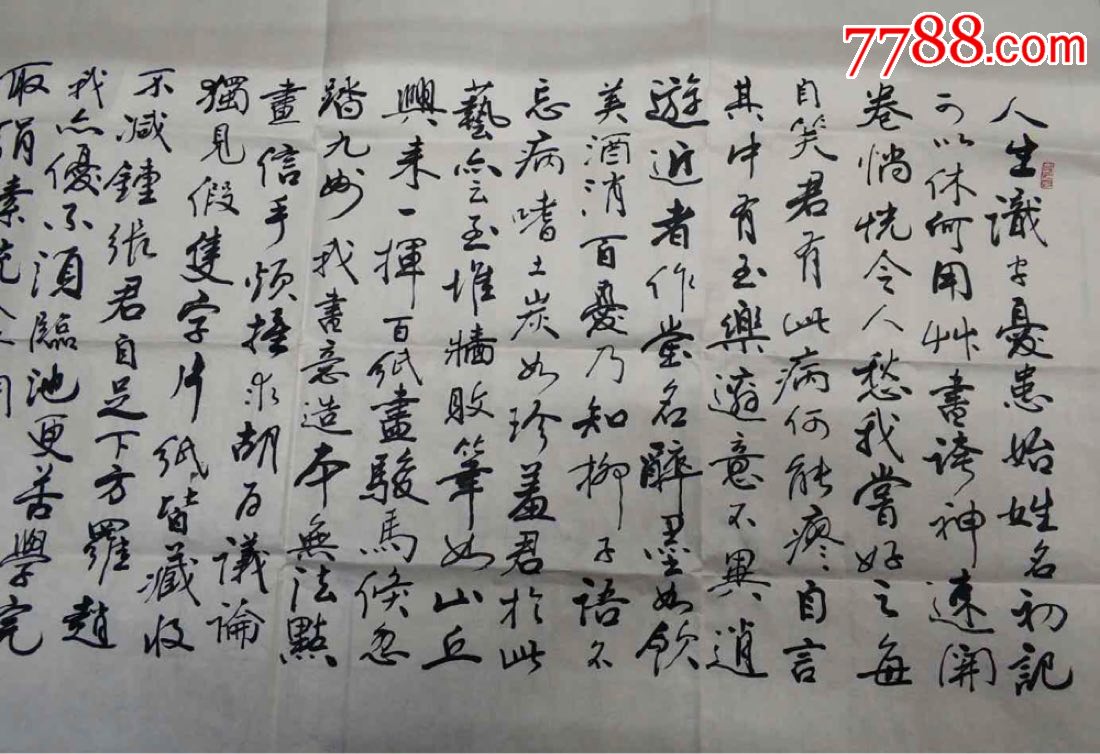 7788.com
人生識字憂患始姓名初記
可以休何用艸書誇神速開
卷惝恍令人愁我嘗好之每
自笑君有此病何能疼自言
其中有至樂適意不異逍
遊近者作堂名醉墨如飲
美酒消百憂乃知柳子語不
忘病嗜土炭如珍羞君於此
藝亦云至堆墻敗筆如山丘
興来一揮百紙盡駿馬倏忽
踏九州我書意造本無法點
畫信手煩推求胡为議論
獨見假隻字片紙皆藏收
不减鍾張君自足下方羅趙
我亦優不須臨池更苦學完
取絹素充